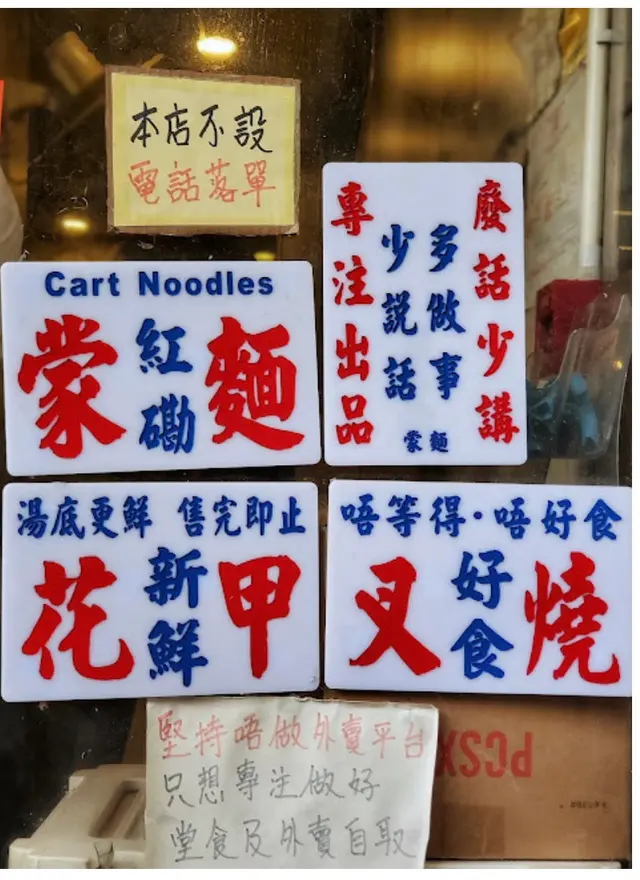 本店不設
電話落單
廢話少講
多做事
少説話
專注出品
蒙麵
Cart Noodles
蒙
紅磡
麵
湯底更鮮 售完即止
花
新鮮
甲
唔等得·唔好食
叉
好食
燒
堅持唔做外賣平台
只想專注做好
堂食及外賣自取